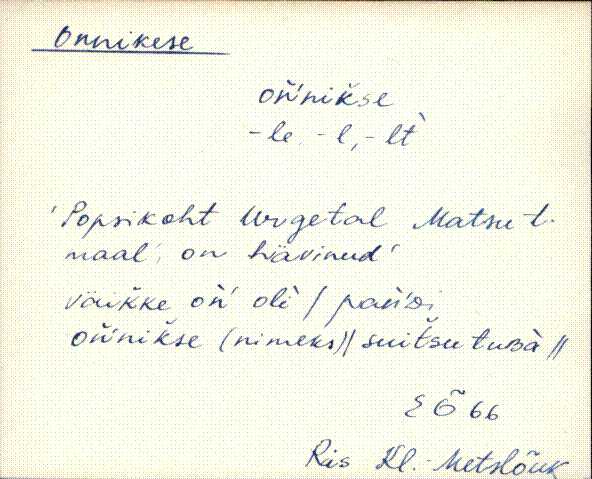 Onnikese
oǹ'nikse
-le, -l, -lt̀
'Popsikoht Urgetal Matsu t.
maal', on hävinud'
väikke oǹ' olì / pań'di
oǹ'nikse (nimeks) // suitsu tubà //
EÕ 66
Räs Kl.-Metslõuk